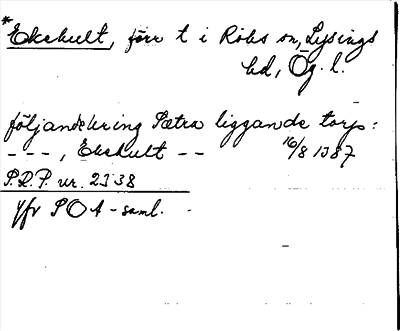 *Ekhult, förr t i Röks sn, Lysings
hd, Ög. l.
följande kring Sætra liggande torp:
- - - , Ekhult - - 16/8 1387
S.R.P. nr. 2338
Jfr SOA - saml.